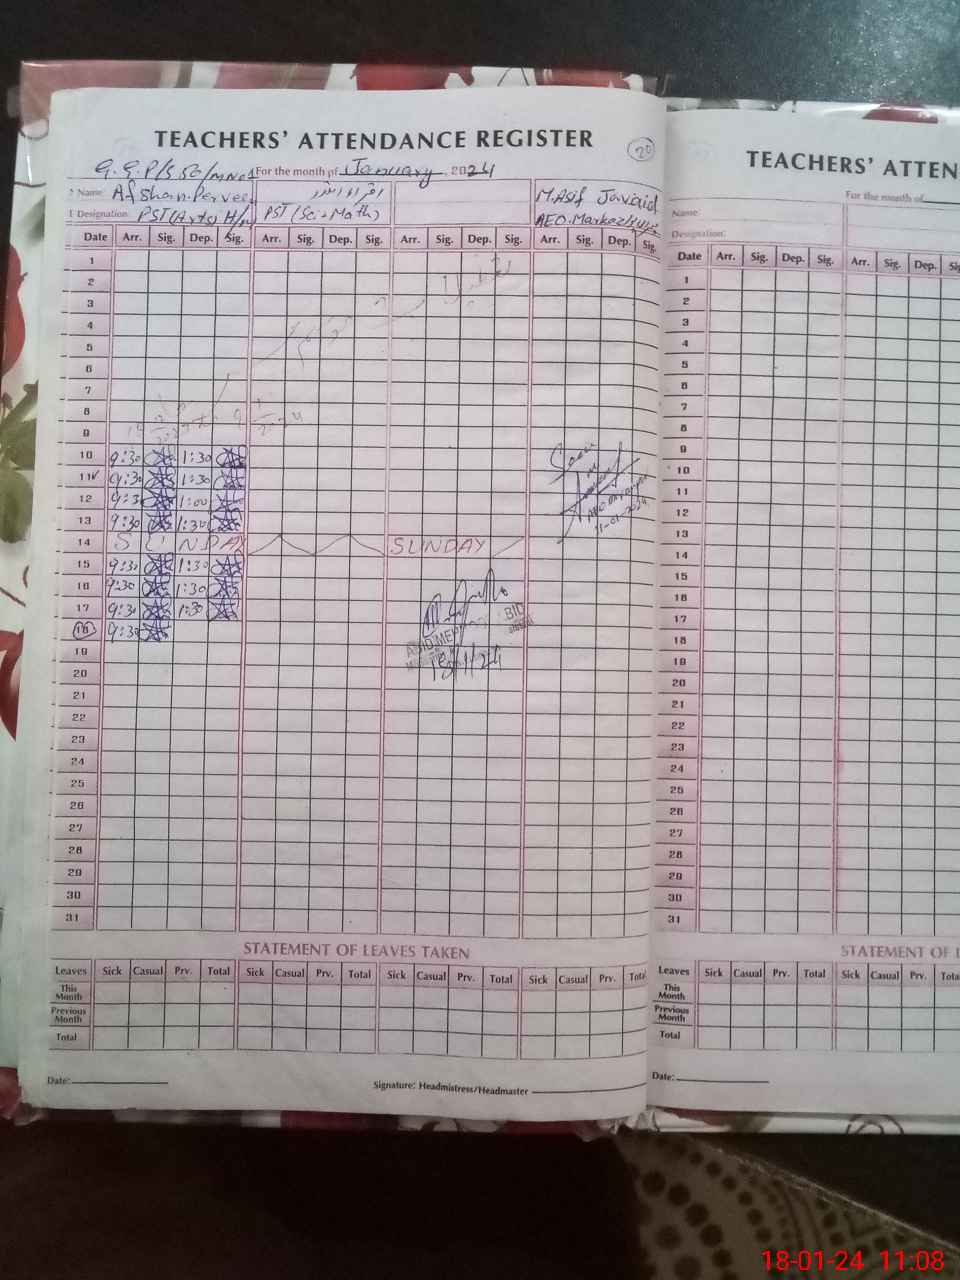 TEACHERS' ATTENDANCE REGISTER
20
G.G.P/S 56/M No1 For the month of January 2024
Name: Afshan Perveen M.Asif Javaid
Designation: PST(Arts) H/M PST (Sci-Math) AEO.Markaz
Date Arr. Sig. Dep. Sig. Arr. Sig. Dep. Sig. Arr. Sig. Dep. Sig. Arr. Sig. Dep. Sig.
1
2
3
4
5
6
7
8
9
10 9:30 1:30
11 9:30 1:30
12 9:30 1:00
13 9:30 1:30
14 SUNDAY SUNDAY
15 9:30 1:30
16 9:30 1:30
17 9:30 1:30
18 9:30
19
20
21
22
23
24
25
26
27
28
29
30
31
11-01-2024
18/1/24
STATEMENT OF LEAVES TAKEN
Leaves Sick Casual Prv. Total Sick Casual Prv. Total Sick Casual Prv. Total Sick Casual Prv. Total
This Month
Previous Month
Total
Date:
Signature: Headmistress/Headmaster
TEACHERS' ATTEN
For the month of
Name:
Designation:
Date Arr. Sig. Dep. Sig. Arr. Sig. Dep.
1
2
3
4
5
6
7
8
9
10
11
12
13
14
15
16
17
18
19
20
21
22
23
24
25
26
27
28
29
30
31
STATEMENT OF L
Leaves Sick Casual Prv. Total Sick Casual Prv.
This Month
Previous Month
Total
Date:
18-01-24 11:08